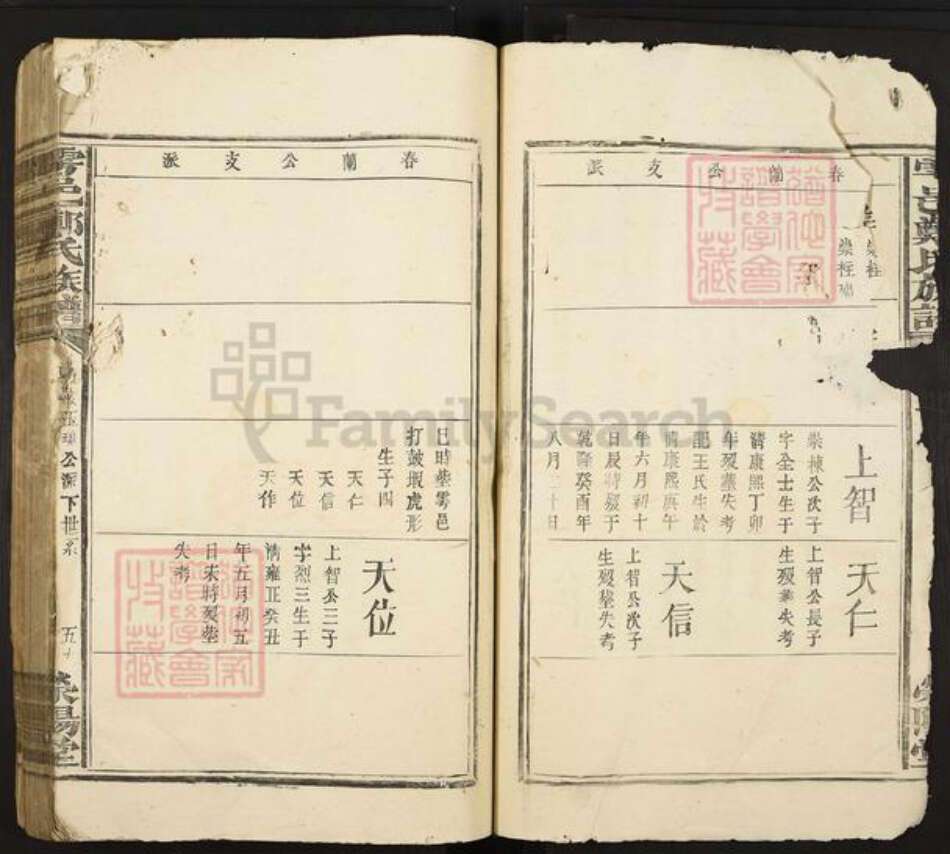 春蘭公支派
崇柱
上智
崇棟公次子
字全士生于
清康熙丁卯
年歿塟失考
配王氏生於
清康熙庚午
年六月初十
日辰時歿于
乾隆癸酉年
八月二十日
天仁
上智公長子
生歿塟失考
天信
上智公次子
生歿塟失考
鄭氏族譜
春蘭公支派
巳時塟雩邑
打鼓瑕虎形
生子四
天仁
天信
天位
天作
天位
上智公三子
字烈三生于
清雍正癸丑
年五月初五
日未時歿塟
失考
雩邑鄭氏族譜
公派下世系
五十
滎陽堂
道德家
譜學會
收藏
FamilySearch